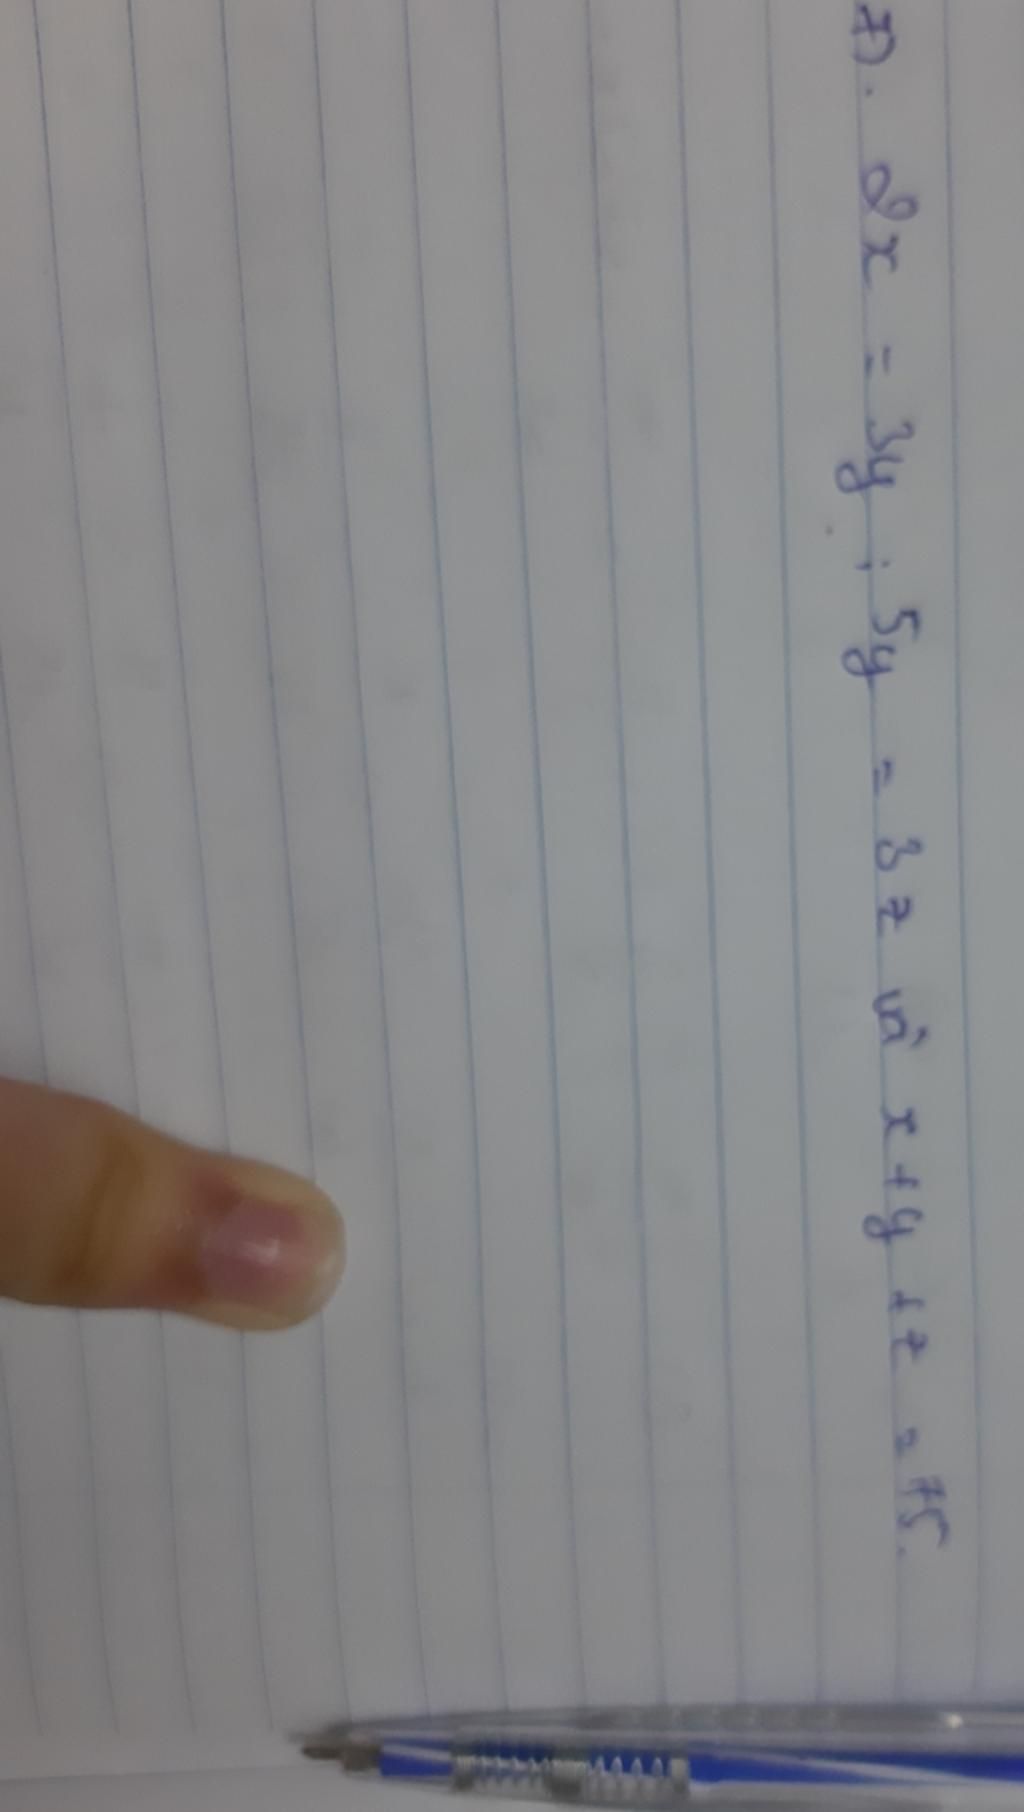 7). 2x = 3y ; 5y = 3z và x+y+z = 75.